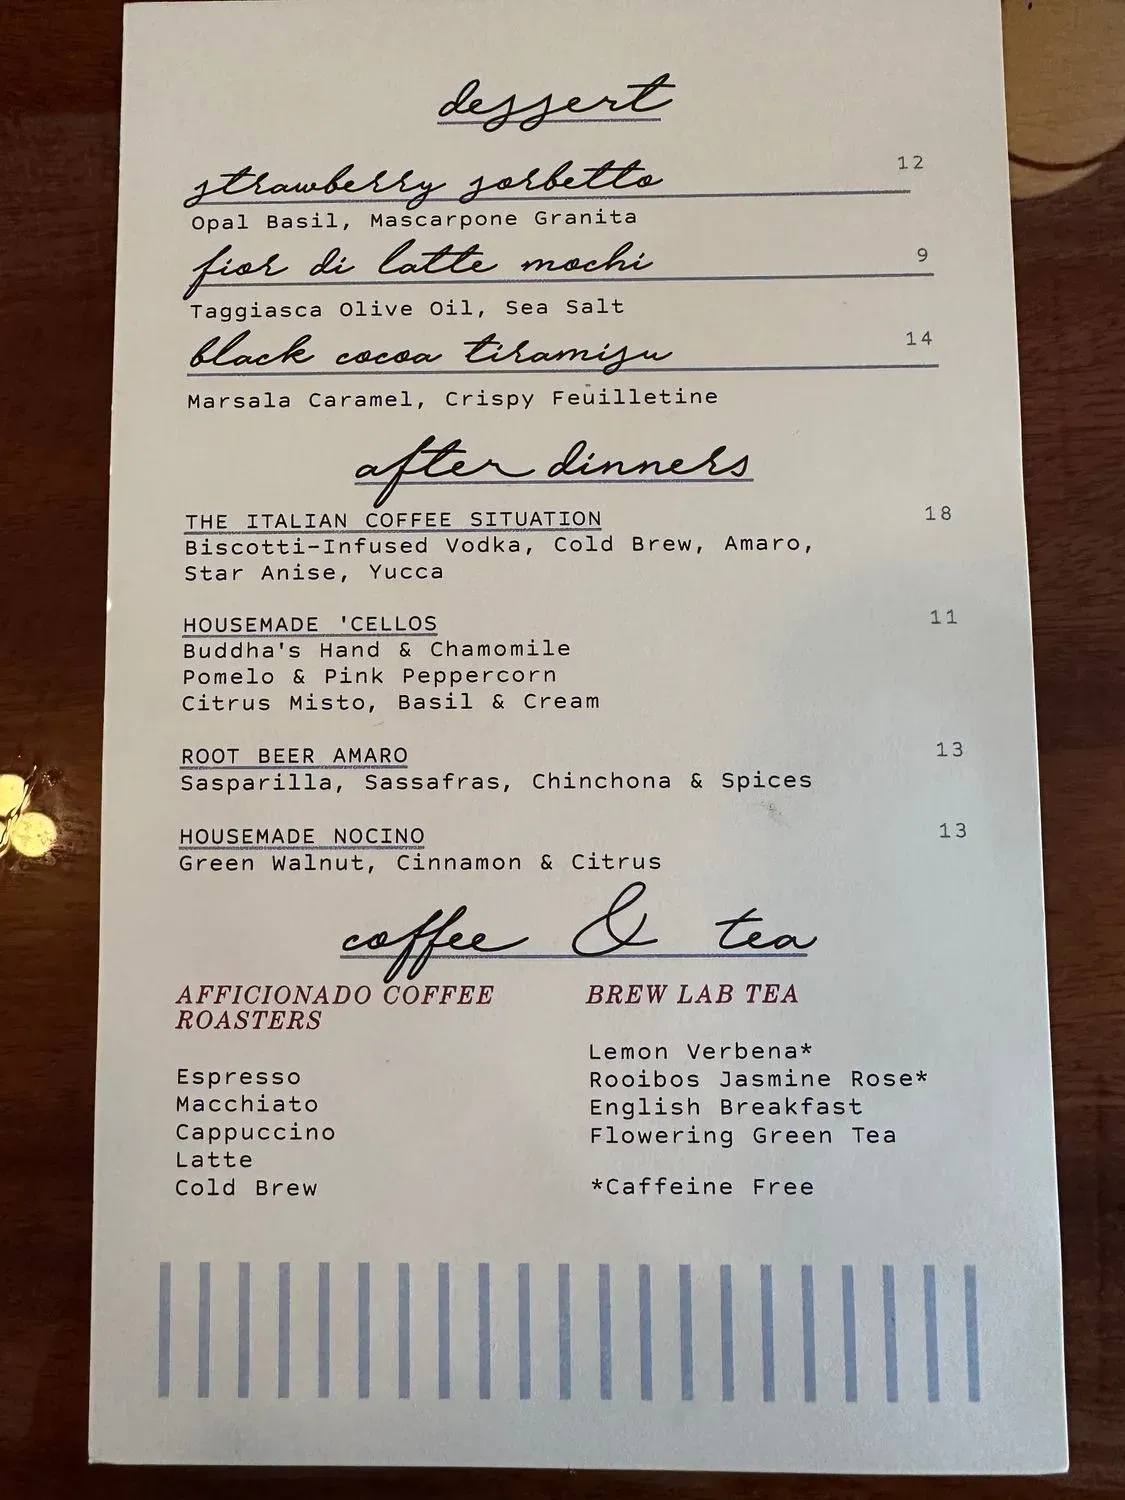 dessert
strawberry sorbetto 12
Opal Basil, Mascarpone Granita
fior di latte mochi 9
Taggiasca Olive Oil, Sea Salt
black cocoa tiramisu 14
Marsala Caramel, Crispy Feuilletine
after dinners
THE ITALIAN COFFEE SITUATION 18
Biscotti-Infused Vodka, Cold Brew, Amaro,
Star Anise, Yucca
HOUSEMADE 'CELLOS 11
Buddha's Hand & Chamomile
Pomelo & Pink Peppercorn
Citrus Misto, Basil & Cream
ROOT BEER AMARO 13
Sasparilla, Sassafras, Chinchona & Spices
HOUSEMADE NOCINO 13
Green Walnut, Cinnamon & Citrus
coffee & tea
AFFICIONADO COFFEE
ROASTERS
Espresso
Macchiato
Cappuccino
Latte
Cold Brew
BREW LAB TEA
Lemon Verbena*
Rooibos Jasmine Rose*
English Breakfast
Flowering Green Tea
*Caffeine Free